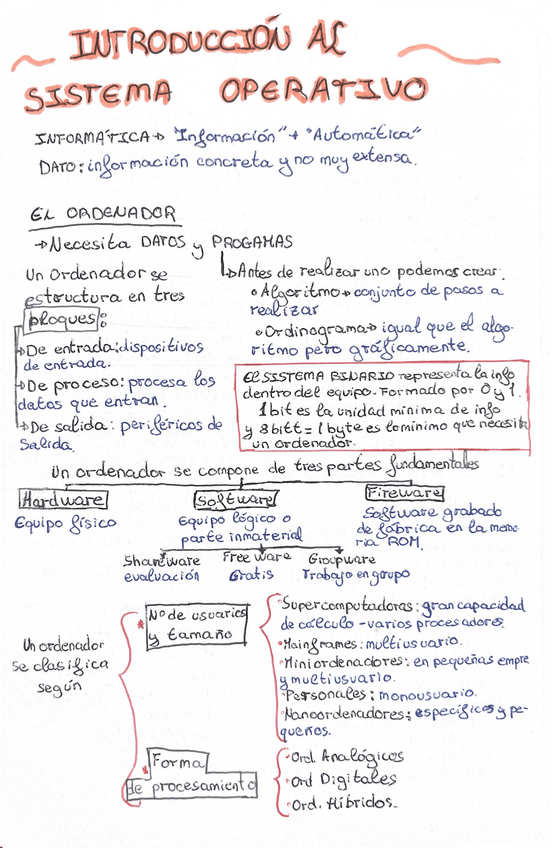 INTRODUCCIÓN AL
SISTEMA OPERATIVO
INFORMÁTICA → "Información" + "Automática"
DATO: información concreta y no muy extensa.
EL ORDENADOR
→ Necesita DATOS y PROGAMAS
Un Ordenador se
estructura en tres
bloques:
→ De entrada: dispositivos
de entrada.
→ De proceso: procesa los
datos que entran.
→ De salida: periféricos de
Salida.
→ Antes de realizar uno podemos crear:
• Algoritmo → conjunto de pasos a
realizar
• Ordinograma → igual que el algo-
ritmo pero gráficamente.
El SISTEMA BINARIO representa la info
dentro del equipo. Formado por 0 y 1.
1 bit es la unidad mínima de info
y 8 bitt = 1 byte es lo mínimo que necesita
un ordenador.
Un ordenador se compone de tres partes fundamentales
Hardware
Equipo físico
Software
Equipo lógico o
parte inmaterial
Fireware
Software grabado
de fábrica en la memo
ria ROM.
Shareware
evaluación
Free ware
Gratis
Groupware
Trabajo en grupo
Un ordenador
se clasifica
según
* Nº de usuarios
y tamaño
• Supercomputadoras: gran capacidad
de cálculo - varios procesadores.
• Mainframes: multiusuario.
• Miniordenadores: en pequeñas empre
y multiusuario.
• Personales: monousuario.
• Nanoordenadores: específicos y pe-
queños.
* Forma
de procesamiento
• Ord. Analógicos
• Ord Digitales
• Ord. Híbridos.